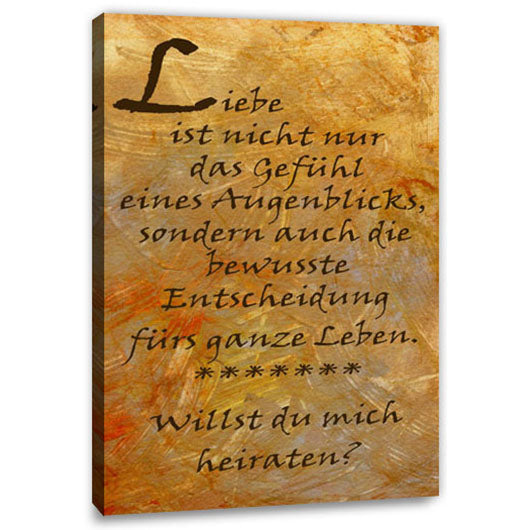 Liebe
ist nicht nur
das Gefühl
eines Augenblicks,
sondern auch die
bewusste
Entscheidung
fürs ganze Leben.
*******
Willst du mich
heiraten?